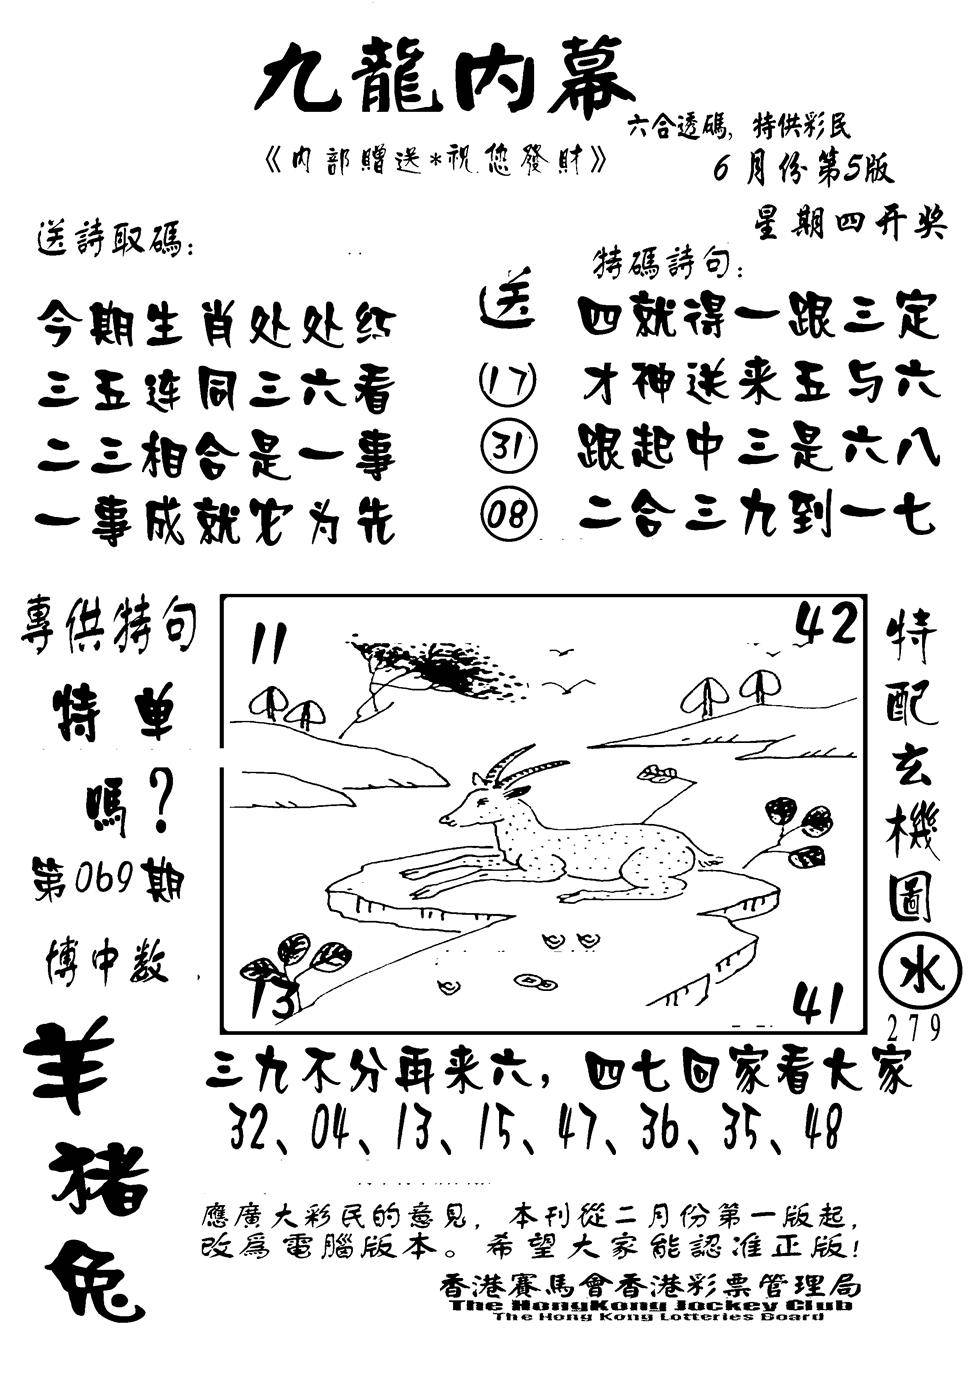 九龍内幕
六合透碼，特供彩民
《内部贈送*祝您發財》
6月份第5版
星期四开奖
送詩取碼：
今期生肖处处红
三五连同三六看
二三相合是一事
一事成就它为先
送
17
31
08
特碼詩句：
四就得一跟三定
才神送来五与六
跟起中三是六八
二合三九到一七
專供特句
特单
嗎？
第069期
博中数
羊
猪
兔
11
42
13
41
特配玄機圖
水
279
三九不分再来六，四七回家看大家
32、04、13、15、47、36、35、48
應廣大彩民的意見，本刊從二月份第一版起，
改爲電腦版本。希望大家能認准正版！
香港賽馬會香港彩票管理局
The HongKong Jockey Club
The Hong Kong Lotteries Board